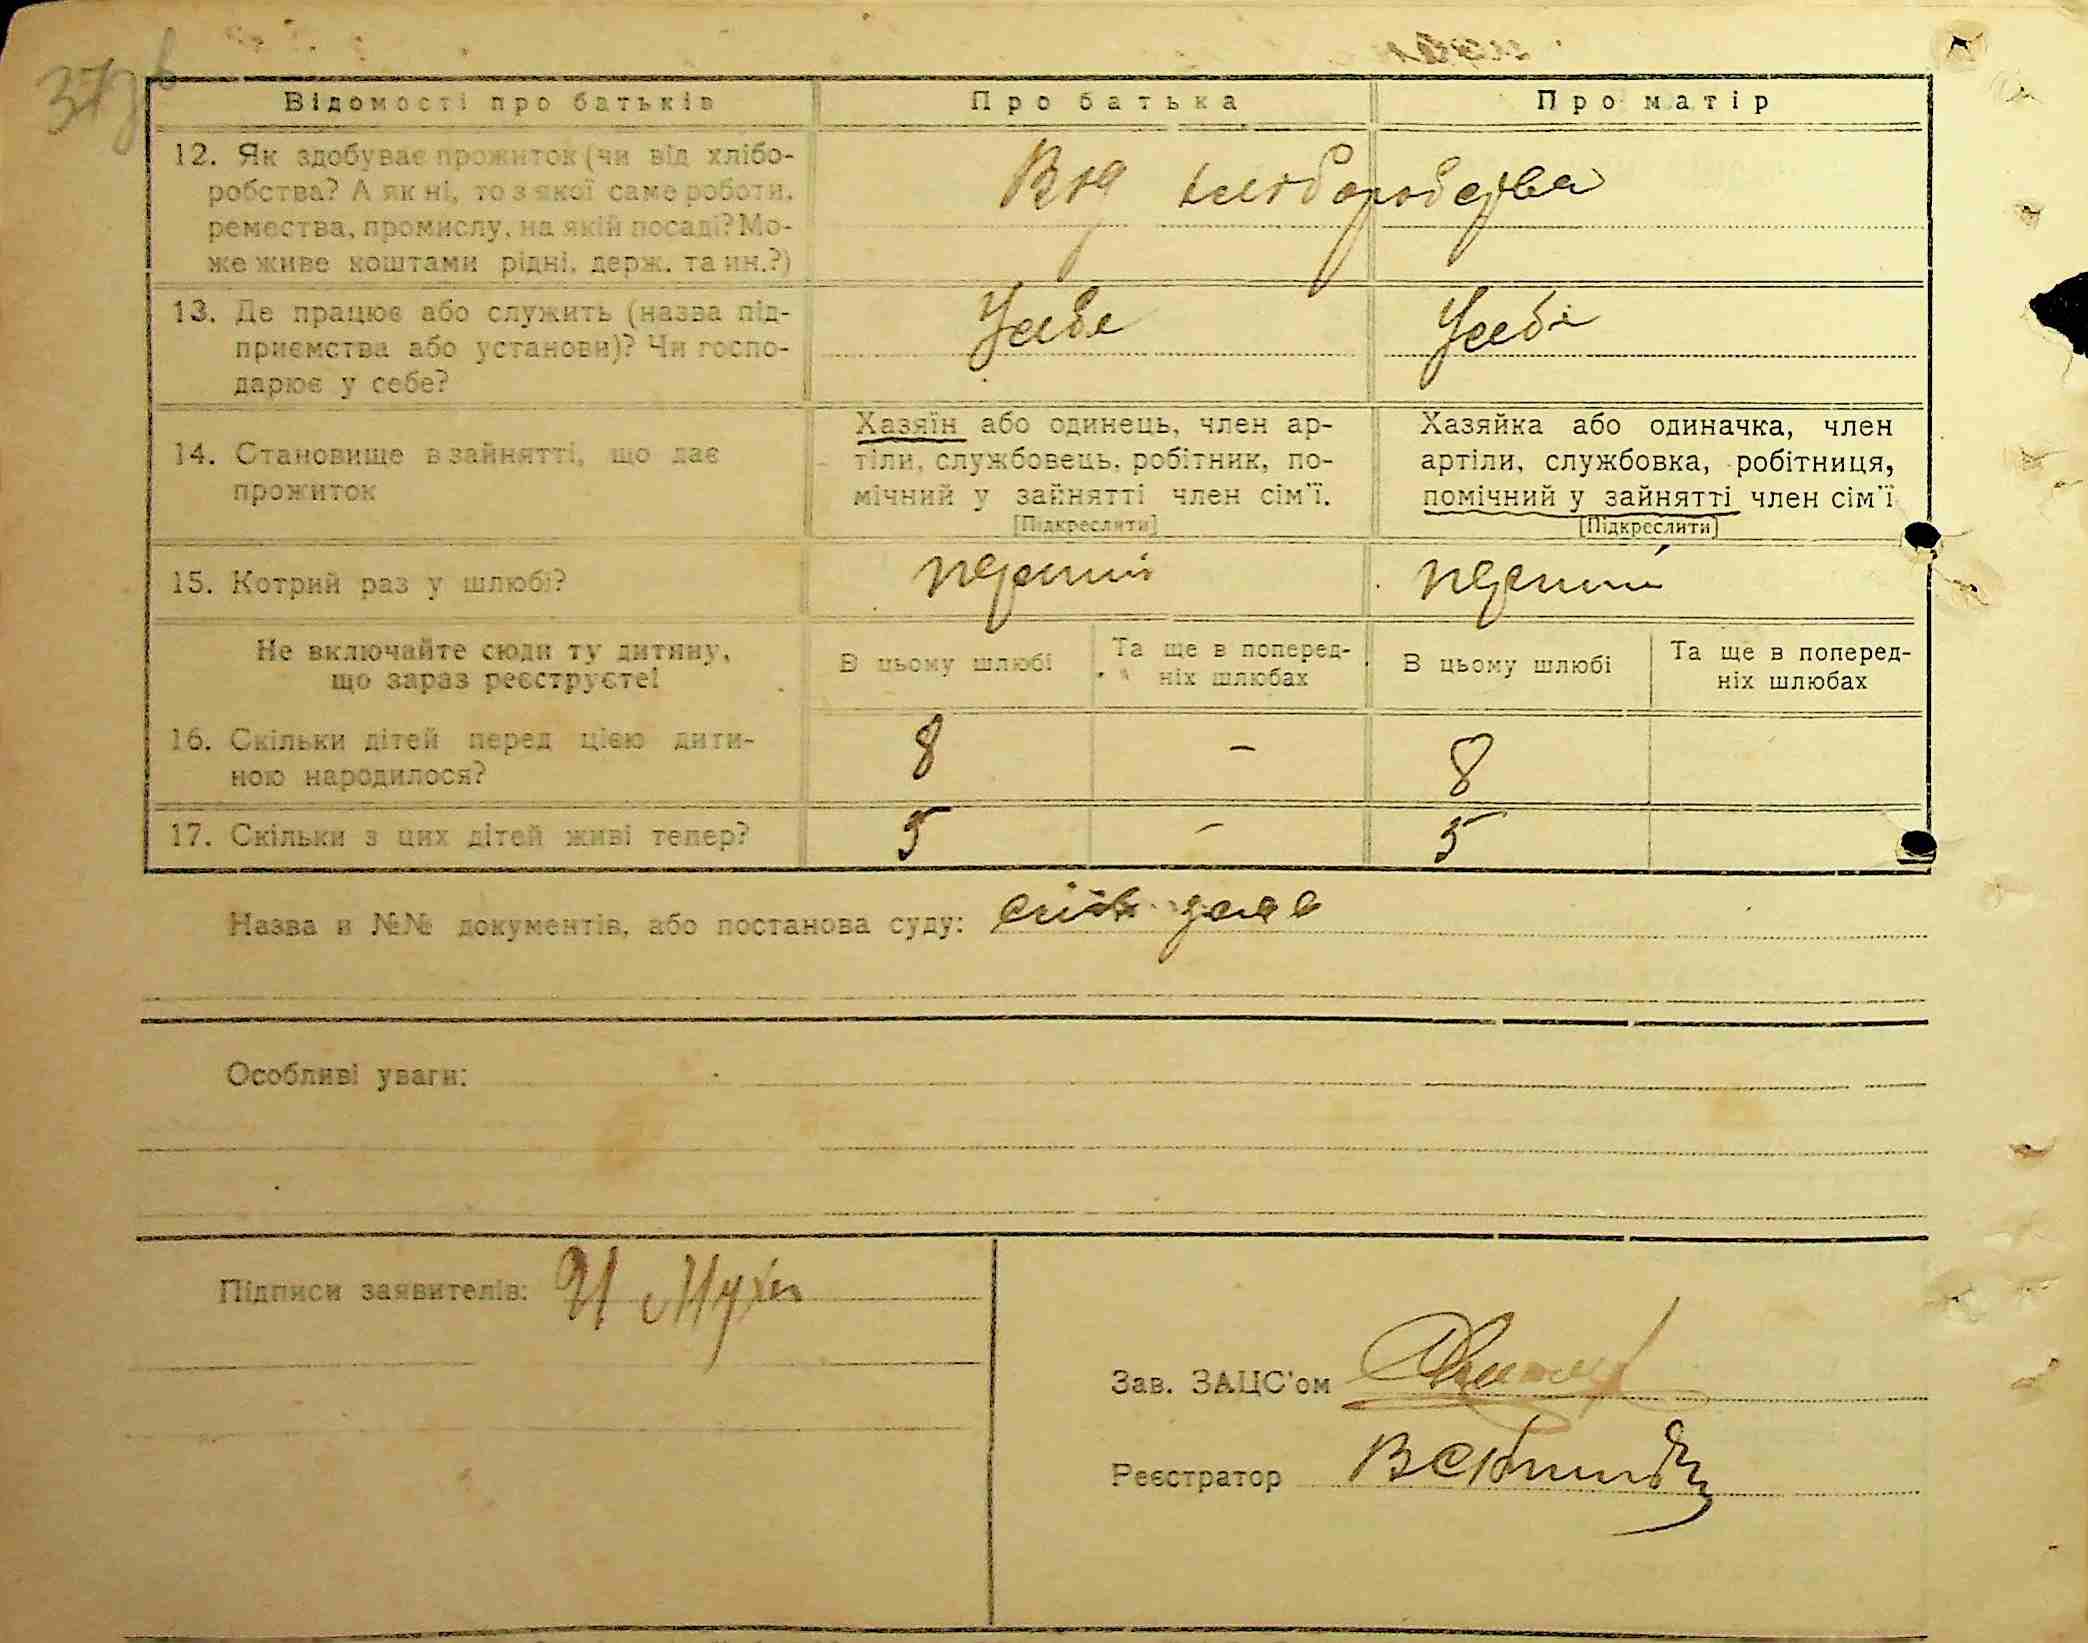 Відомості про батьків Про батька Про матір
12. Як здобуває прожиток (чи від хлібо-
робства? А як ні, то з якої саме роботи,
ремества, промислу, на якій посаді? Мо-
же живе коштами рідні, держ. та ин.?)
Від хліборобства
13. Де працює або служить (назва під-
приємства або установи)? Чи госпо-
дарює у себе?
У себе У себе
14. Становище в зайнятті, що дає
прожиток
Хазяїн або одинець, член ар-
тіли, службовець, робітник, по-
мічний у зайнятті член сім'ї.
[Підкреслити]
Хазяйка або одиначка, член
артіли, службовка, робітниця,
помічний у зайнятті член сім'ї
[Підкреслити]
15. Котрий раз у шлюбі? перший перший
Не включайте сюди ту дитину,
що зараз реєструєте!
В цьому шлюбі
Та ще в поперед-
ніх шлюбах
В цьому шлюбі
Та ще в поперед-
ніх шлюбах
16. Скільки дітей перед цією дити-
ною народилося?
8 – 8
17. Скільки з цих дітей живі тепер? 5 – 5
Назва и №№ документів, або постанова суду:
Особливі уваги:
Підписи заявителів: И Муха
Зав. ЗАЦС'ом
Реєстратор